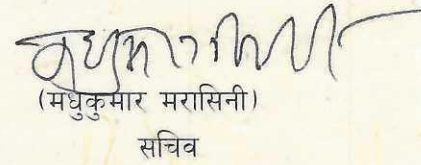 (मधुकुमार मरासिनी)
सचिव